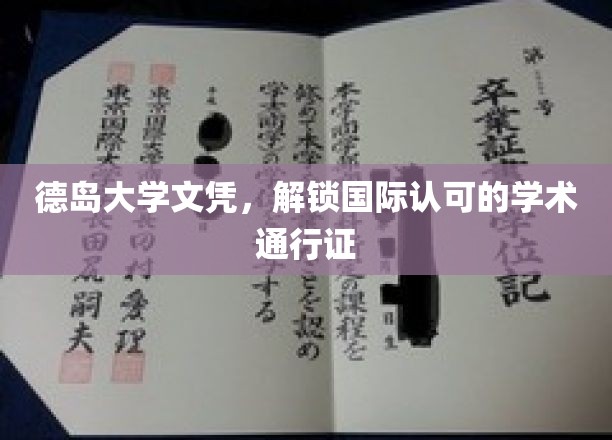 德岛大学文凭，解锁国际认可的学术
通行证
第 号
卒業証書 学位記
本学商学部 定の課程を
修めて本学 ことを認め
学士(商学)の学位 与する
平成
東京国際大学商 長田村愛理
東京国際大学長田尻嗣夫